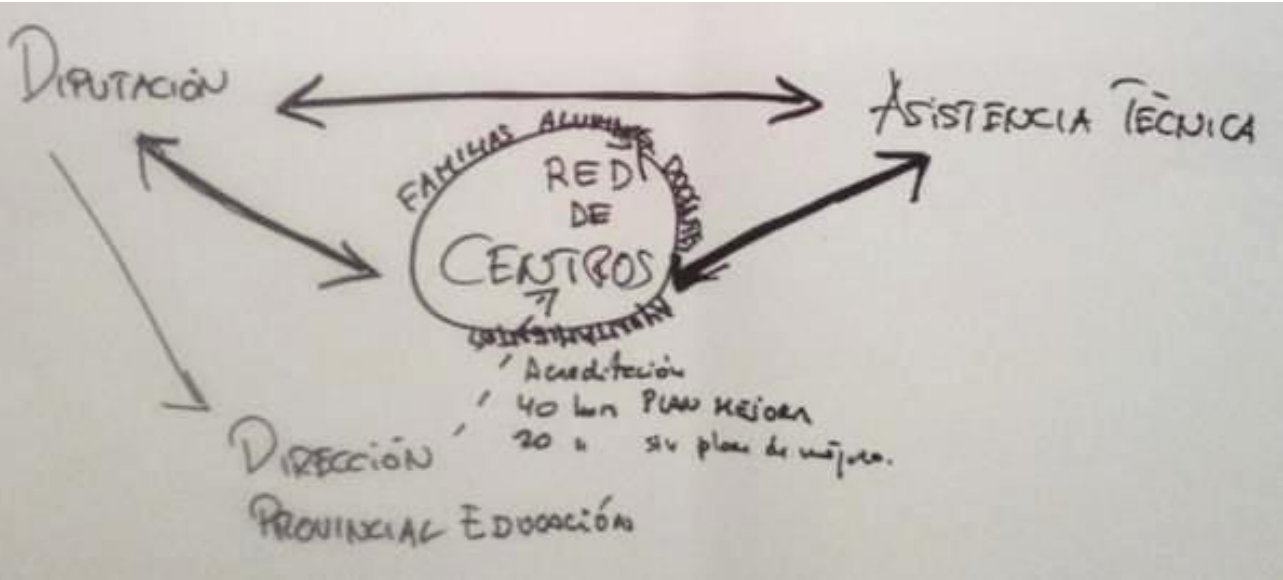 DIPUTACIÓN
ASISTENCIA TÉCNICA
FAMILIAS
RED
DE
CENTROS
Acreditación
40 PLAN MEJORA
20 " sin plan de mejora.
DIRECCIÓN
PROVINCIAL EDUCACIÓN